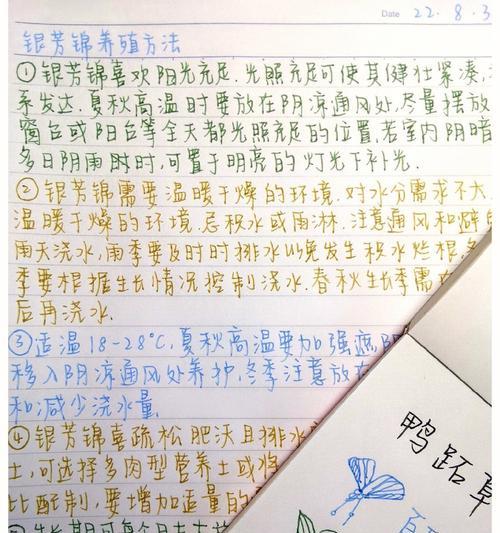 Date 22.8.3
银芳锦养殖方法
①银芳锦喜欢阳光充足.光照充足可使其健壮紧凑,
系发达.夏秋高温时要放在阴凉通风处.尽量摆放
窗台或阳台等全天都光照充足的位置.若室内阴暗
多日阴雨时时,可置于明亮的灯光下补光.
②银芳锦需要温暖干燥的环境.对水分需求不大
温暖干燥的环境.忌积水或雨淋.注意通风和避
雨天浇水,雨季要及时时排水以免发生积水烂根.
季要根据生长情况控制浇水.春秋生长季需
后再浇水.
③适温18-28℃,夏秋高温要加强遮
移入阴凉通风处养护.冬季注意放
和减少浇水量.
④银芳锦喜疏松肥沃且排水
土,可选择多肉型营养土或将
比配制,要增加适量的
生长期可每个月
鸭跖草